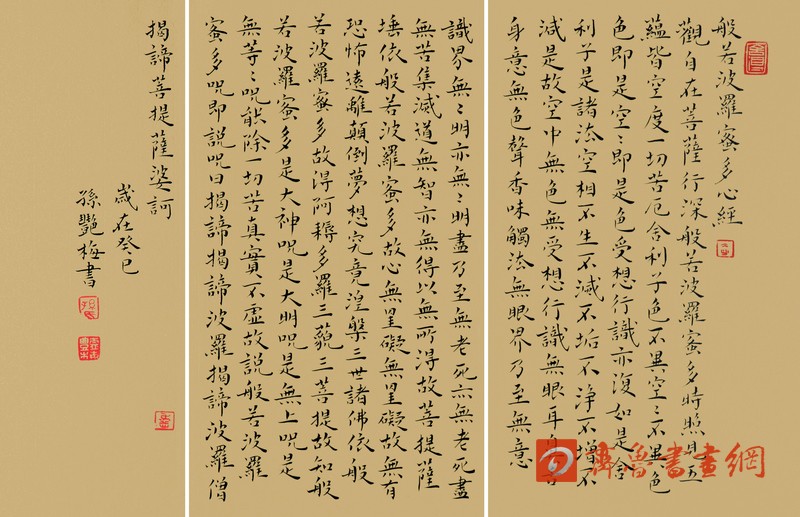 般若波羅蜜多心經
觀自在菩薩行深般若波羅蜜多時照見五
蘊皆空度一切苦厄舍利子色不異空〻不異色
色即是空〻即是色受想行識亦復如是舍
利子是諸法空相不生不滅不垢不淨不增不
減是故空中無色無受想行識無眼耳鼻舌
身意無色聲香味觸法無眼界乃至無意
識界無〻明亦無〻明盡乃至無老死亦無老死盡
無苦集滅道無智亦無得以無所得故菩提薩
埵依般若波羅蜜多故心無罣礙無罣礙故無有
恐怖遠離顛倒夢想究竟涅槃三世諸佛依般
若波羅蜜多故得阿耨多羅三藐三菩提故知般
若波羅蜜多是大神咒是大明咒是無上咒是
無等〻咒能除一切苦真實不虛故說般若波羅
蜜多咒即說咒曰揭諦揭諦波羅揭諦波羅僧
揭諦菩提薩婆訶
歲在癸巳
孫艷梅書
齊魯書畫網